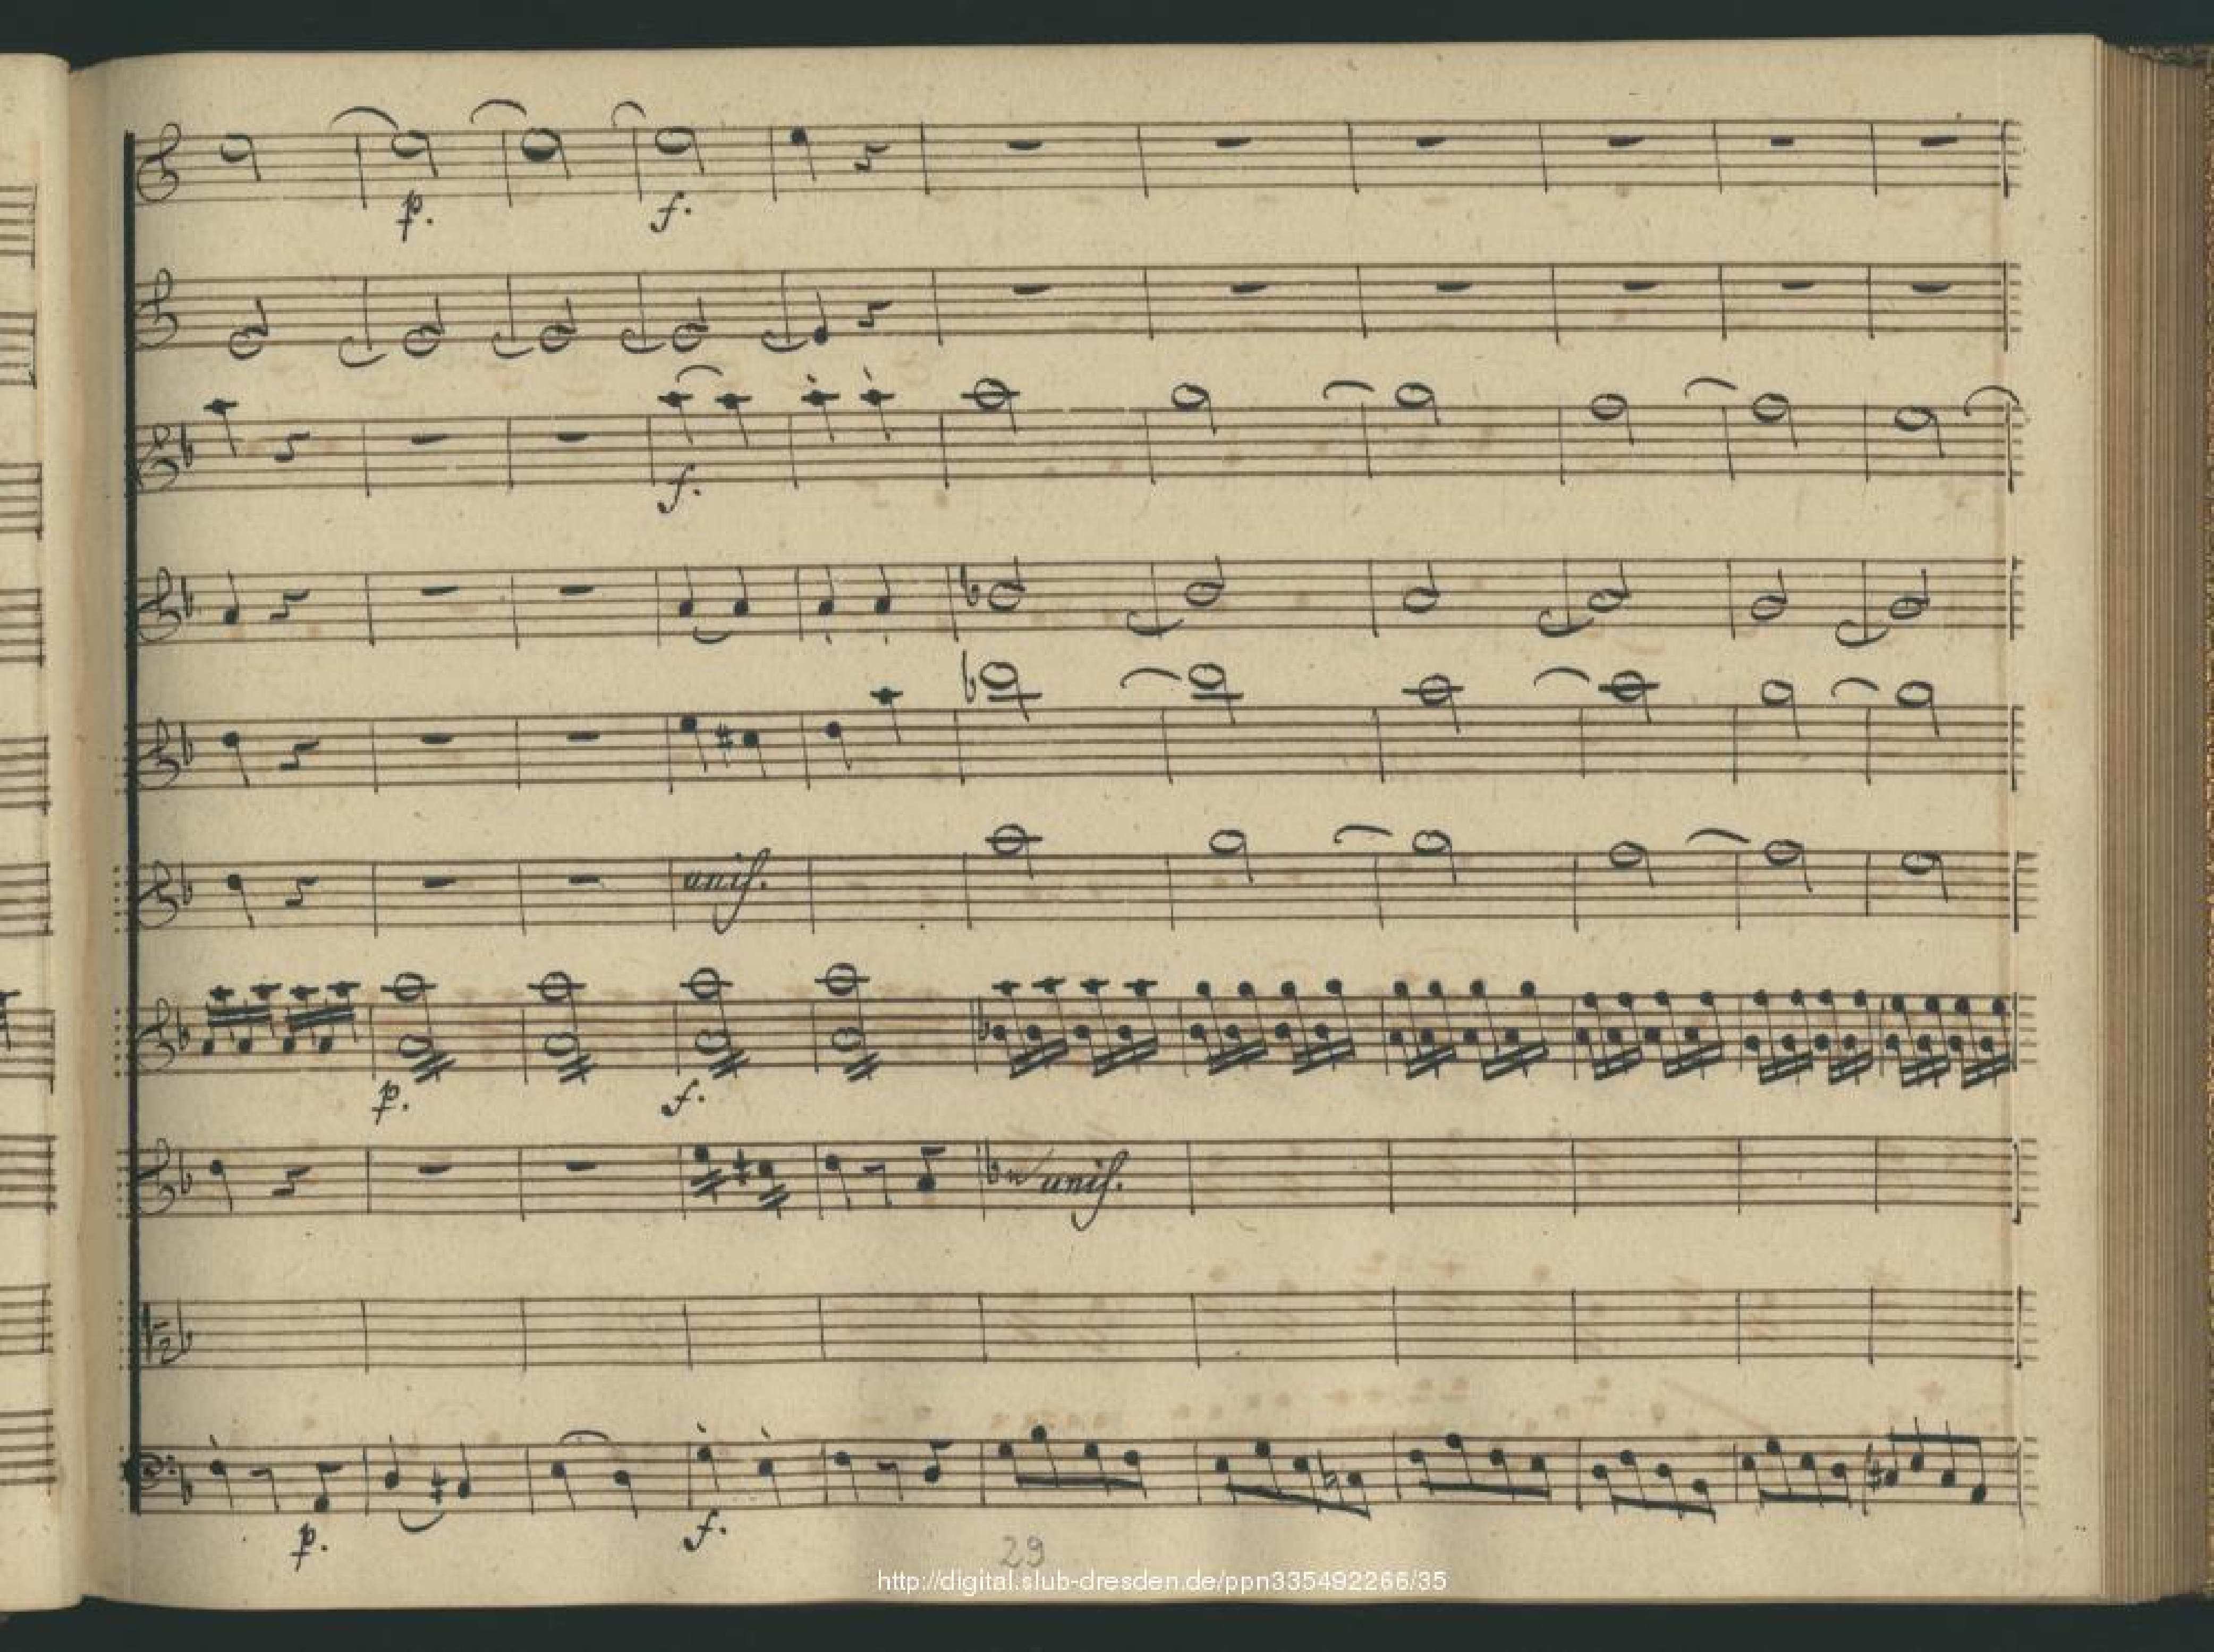 p. f.
f.
unis.
p. f.
unis.
p. f.
29
http://digital.slub-dresden.de/ppn335492266/35